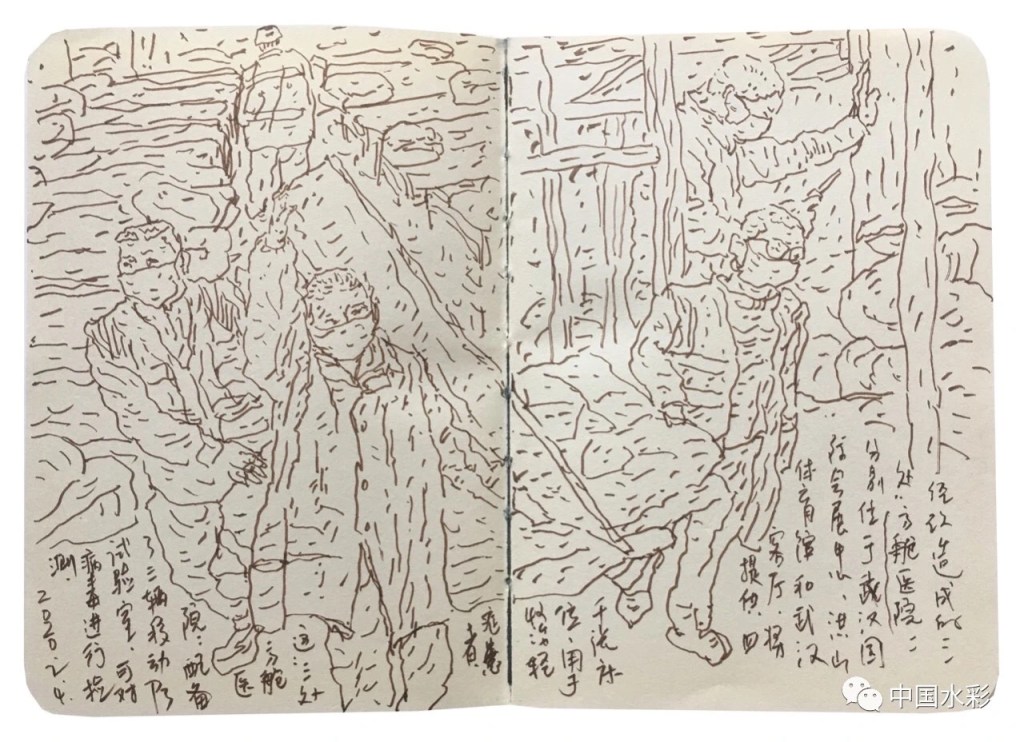 经改造成的三
处"方舱医院"
分别位于武汉国
际会展中心、洪山
体育馆和武汉
客厅,将
提供四
千张床
位,用于
收治轻
症患
者
这三处
方舱
医
院,配备
了三辆移动P3
试验室,可对
病毒进行检
测 2020.2.4.
中国水彩